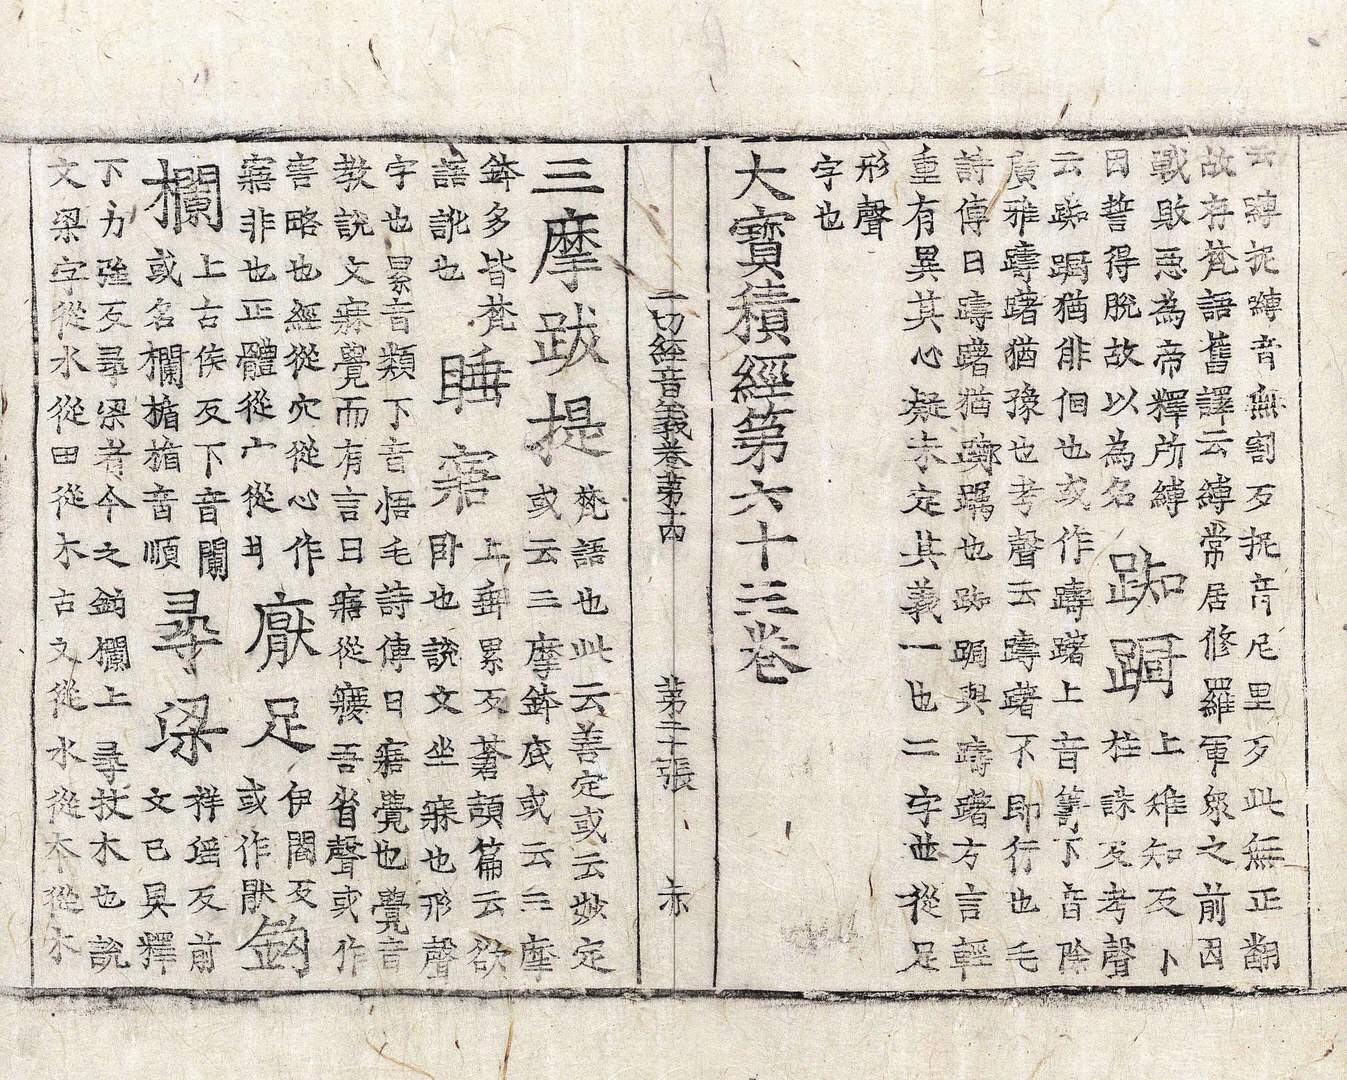 云嚩抳嚩音無割歹抳音尼里歹此無正翻
故存梵語舊譯云縛常居修羅軍衆之前因
戰敗惡為帝釋所縛
因誓得脫故以為名 踟躕 上雉知反卜
柱誅反考聲
云踟躕猶俳佪也或作躊躇上音籌下音除
廣雅躊躇猶豫也考聲云躊躇不即行也毛
詩傳曰躊躇猶躑躅也踟躕與躊躇方言輕
重有異其心疑未定其義一也二字並從足
形聲
字也
大寶積經第六十三卷
一切經音義卷第十四 第二十張 赤
三摩跋提 梵語也此云善定或云妙定
或云三摩鉢底或云三摩
鉢多皆梵
語訛也 睡寤 上垂累反蒼頡篇云欲
臥也說文坐寐也形聲
字也累音類下音悟毛詩傳曰寤覺也覺音
教說文寐覺而有言曰寤從㝱吾省聲或作
害略也經從穴從心作
寤非也正體從宀從爿 猒足 伊閻反
或作厭 鉤
欄 上古侯反下音闌
或名欄楯楯音順 尋梁 祥婬反前
文已具釋
下力強反尋梁者今之鉤欄上尋杖木也說
文梁字從水從田從木古文從水從木從木